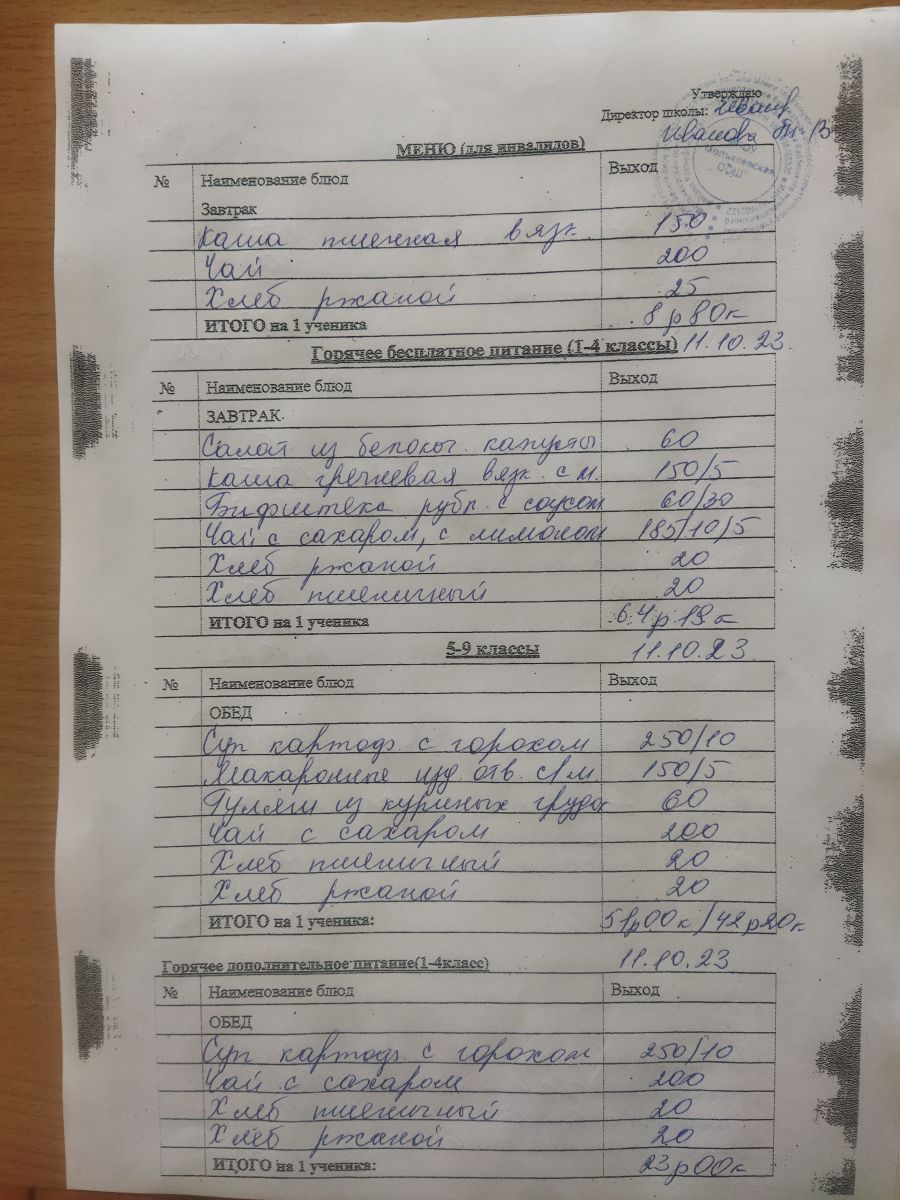 Утверждаю
Директор школы: Иванов
Иванова
МЕНЮ (для инвалидов)
№ Наименование блюд Выход
Завтрак
Каша пшенная вязк. 150
Чай 200
Хлеб ржаной 25
ИТОГО на 1 ученика 8р80к
Горячее бесплатное питание (1-4 классы) 11.10.23.
№ Наименование блюд Выход
ЗАВТРАК
Салат из белокоч. капусты 60
Каша гречневая вязк. с м. 150/5
Бифштекс рубл. с соусом 60/30
Чай с сахаром, с лимоном 185/10/5
Хлеб ржаной 20
Хлеб пшеничный 20
ИТОГО на 1 ученика 64р19к
5-9 классы 11.10.23
№ Наименование блюд Выход
ОБЕД
Суп картоф. с горохом 250/10
Макаронные изд. отв. с/м. 150/5
Гуляш из куриных грудо 60
Чай с сахаром 200
Хлеб пшеничный 20
Хлеб ржаной 20
ИТОГО на 1 ученика: 51р00к/42р20к
Горячее дополнительное питание(1-4класс) 11.10.23
№ Наименование блюд Выход
ОБЕД
Суп картоф. с горохом 250/10
Чай с сахаром 200
Хлеб пшеничный 20
Хлеб ржаной 20
ИТОГО на 1 ученика: 23р00к